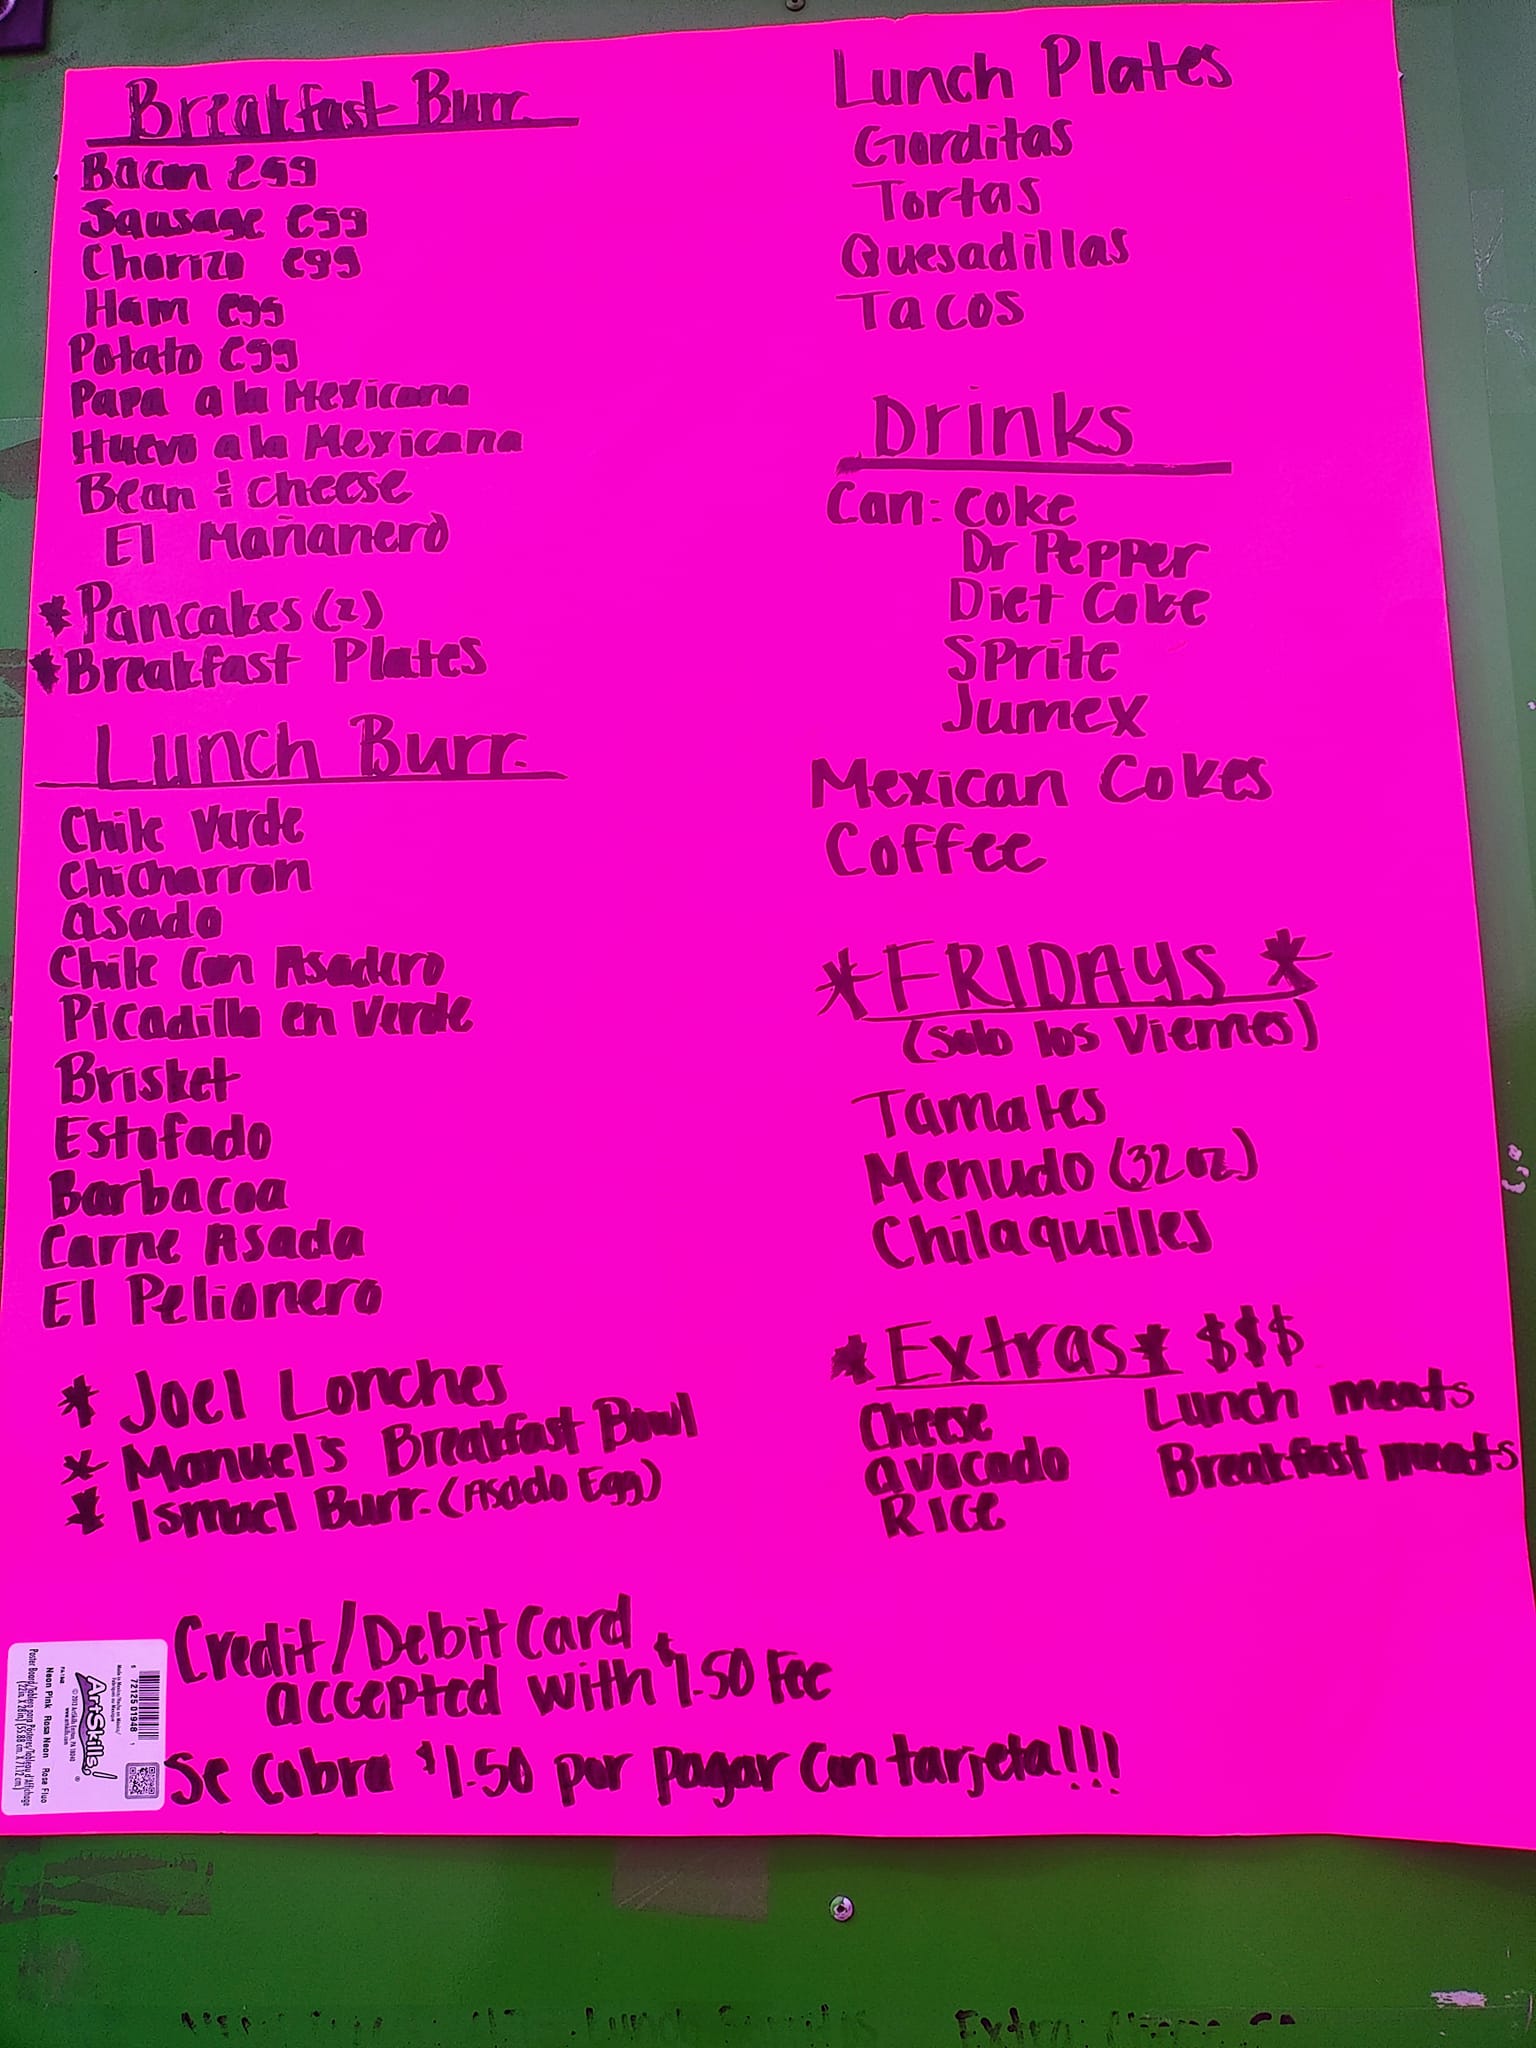 Breakfast Burr.
Bacon egg
Sausage egg
Chorizo egg
Ham egg
Potato egg
Papa a la Mexicana
Huevo a la Mexicana
Bean & cheese
El Mañanero
* Pancakes (2)
* Breakfast Plates
Lunch Burr.
Chile Verde
Chicharron
Asado
Chile Con Asadero
Picadillo en Verde
Brisket
Estofado
Barbacoa
Carne Asada
El Pelionero
* Joel Lonches
* Manuel's Breakfast Bowl
* Ismael Burr. (Asado Egg)
Lunch Plates
Gorditas
Tortas
Quesadillas
Tacos
Drinks
Can: Coke
Dr Pepper
Diet Coke
Sprite
Jumex
Mexican Cokes
Coffee
*FRIDAYS *
(Solo los Viernes)
Tamales
Menudo (32 oz)
Chilaquilles
* Extras * $$$
Cheese
Avocado
Rice
Lunch meats
Breakfast meats
Credit/Debit Card
accepted with $1.50 Fee
Se Cobra $1.50 por pagar Con tarjeta!!!
ArtSkills!®
© 2013 ArtSkills Easton, PA 18040
www.artskills.com
Neon Pink Rosa Neon Rose Fluo
72125 01948
Lunch
Extra